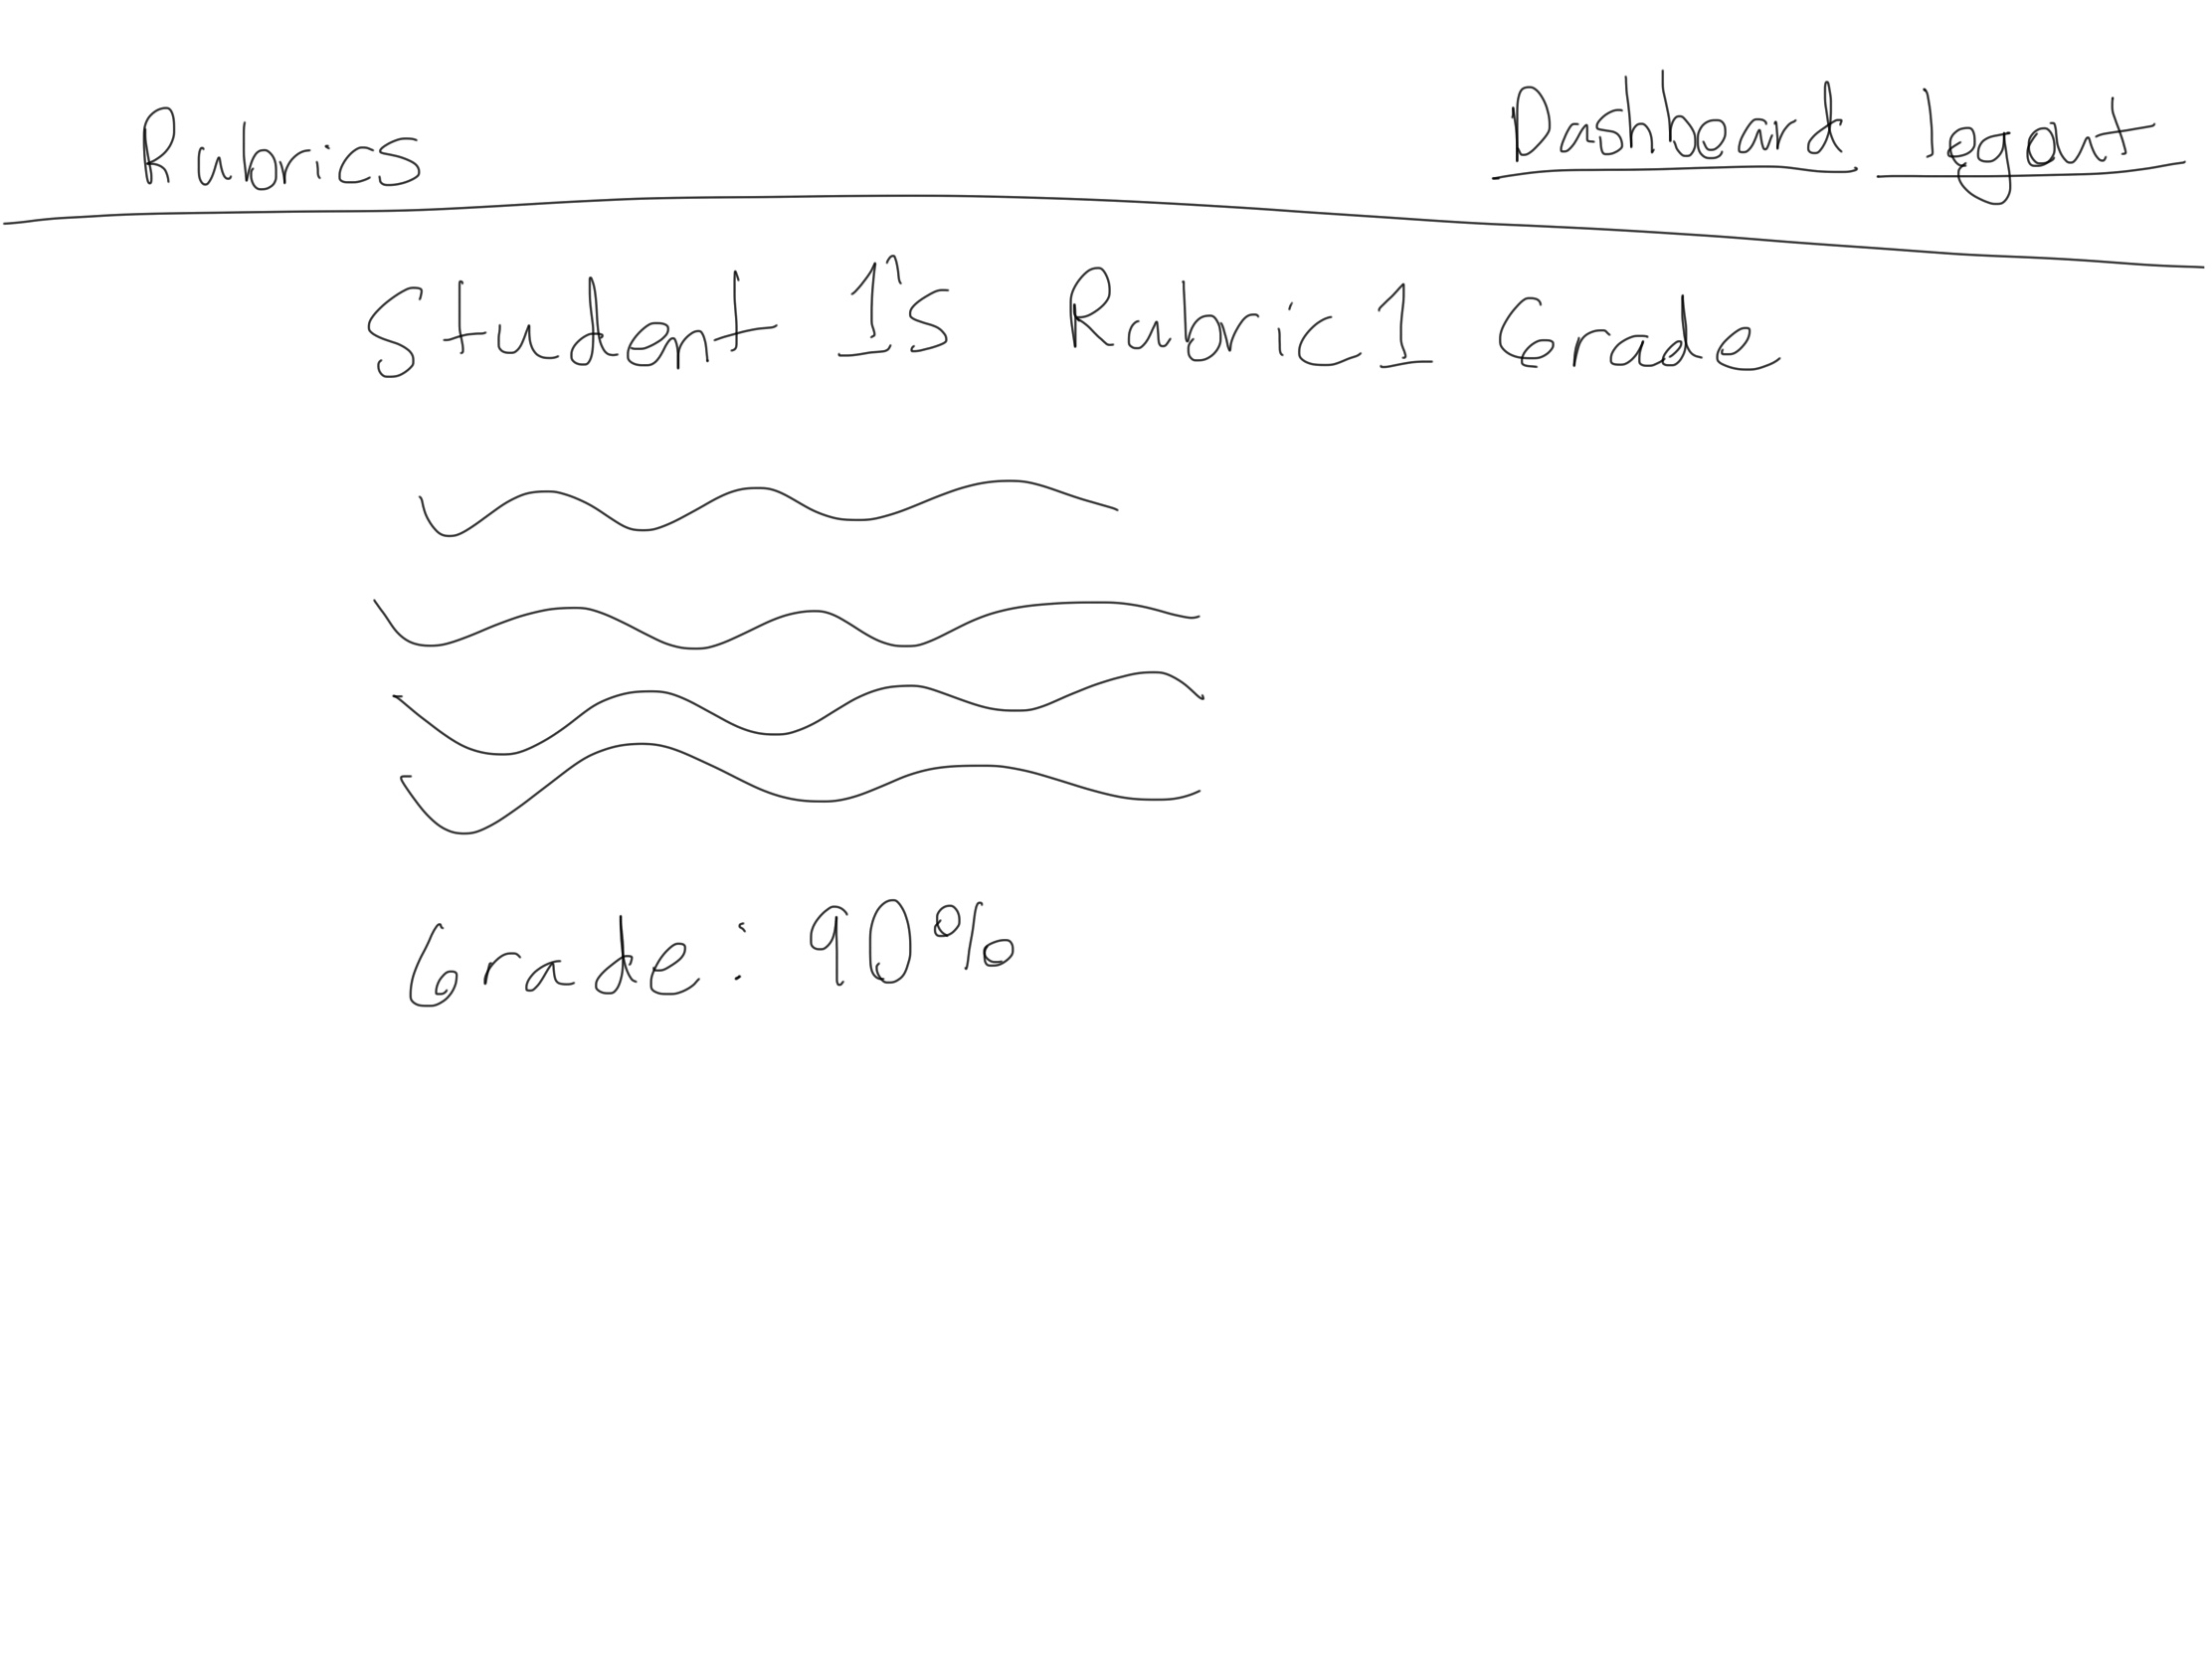 Rubrics Dashboard legout
Student 1's Rubric 1 Grade
Grade: 90%